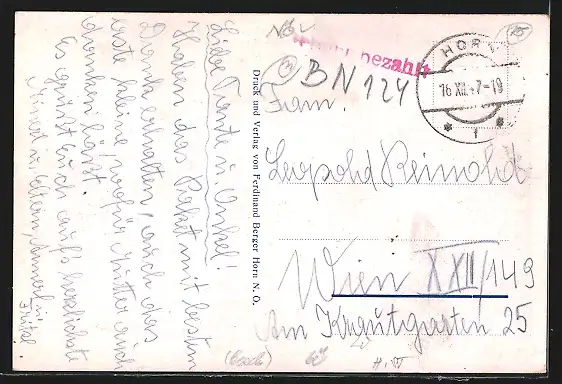 Liebe Tante u. Onkel!
Haben das Paket mit bestem
Dank erhalten, auch das
erste kleine, wofür Mutter euch
danken lässt.
Es grüßt euch auf's herzlichste
Eltern, Annerl u.
Fritzl
Druck und Verlag von Ferdinand Berger Horn N. Ö.
bezahlt
BN 124
HORN
16 XII 47-19
* 1 *
Fam.
Leopold Reinold
Wien XXII/149
Am Krautgarten 25